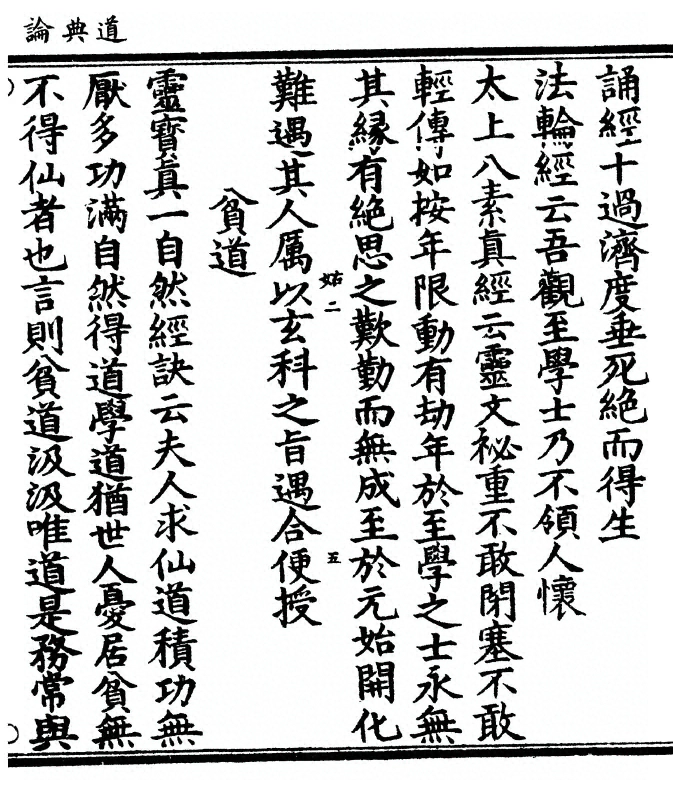 道典論
誦經十過濟度垂死絕而得生
法輪經云吾觀至學士乃不領人懷
太上八素眞經云靈文祕重不敢閉塞不敢
輕傳如按年限動有劫年於至學之士永無
其縁有絕思之歎勤而無成至於元始開化
姑二
五
難遇其人厲以玄科之旨遇合便授
貧道
靈寶眞一自然經訣云夫人求仙道積功無
厭多功滿自然得道學道猶世人憂居貧無
不得仙者也言則貧道汲汲唯道是務常與